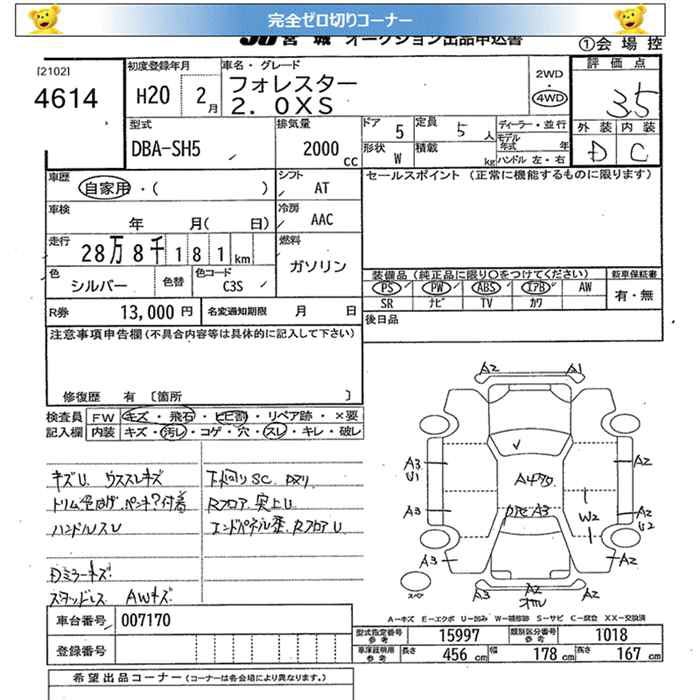 完全ゼロ切りコーナー
宮城 オークション出品申込書
①会場控
[2102]
4614
初度登録年月
H20 2月
車名・グレード
フォレスター
2.0XS
2WD
・
4WD
評価点
3.5
外装 内装
D C
型式
DBA-SH5
排気量
2000cc
ドア 5
形状 W
定員 5人
積載 kg
ディーラー・並行
モデル年式 年
ハンドル 左・右
車歴
自家用・( )
シフト
AT
車検
年 月( 日)
冷房
AAC
走行
28万8千181km
燃料
ガソリン
色
シルバー
色替
色コード
C3S
R券 13,000円
名変通知期限 月 日
セールスポイント (正常に機能するものに限ります)
装備品(純正品に限り〇をつけてください)
PS PW ABS エアB AW
SR ナビ TV カワ
新車保証書
有・無
後日品
注意事項申告欄(不具合内容等は具体的に記入して下さい)
修復歴 有〔箇所 〕
検査員
記入欄
FW キズ・飛石・ヒビ割・リペア跡・×要
内装 キズ・汚レ・コゲ・穴・スレ・キレ・破レ
キズU ウススレキズ
下回りSC
ハンドルスレ
Rフロア 突上U
RフロアU
Dミラーキズ
スタッドレス AWキズ
A2 A1
A3
U1
A3
A3
A2
A2
U2
W2
A3
A2
A2
A2
A2
A-キズ E-エクボ U-凹み W-補修跡 S-サビ C-腐食 XX-交換済
車台番号 007170
登録番号
型式指定番号
参考
15997
類別区分番号
参考
1018
車庫証明用
参考
長さ 456cm 幅 178cm 高さ 167cm
希望出品コーナー(コーナーは各会場により異なります。)